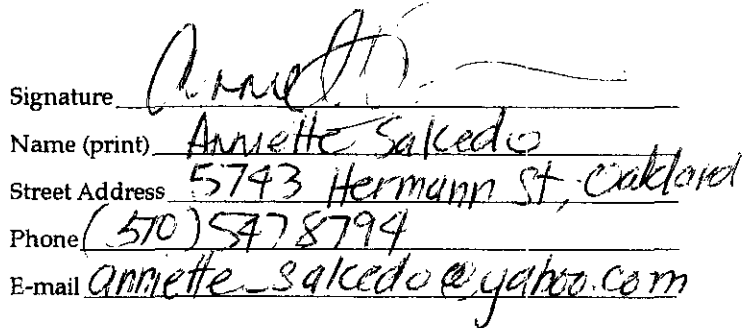 Signature Anniett
Name (print) Anniette Salcedo
Street Address 5743 Hermann St, Oakland
Phone (510) 547 8794
E-mail anniette_salcedo@yahoo.com